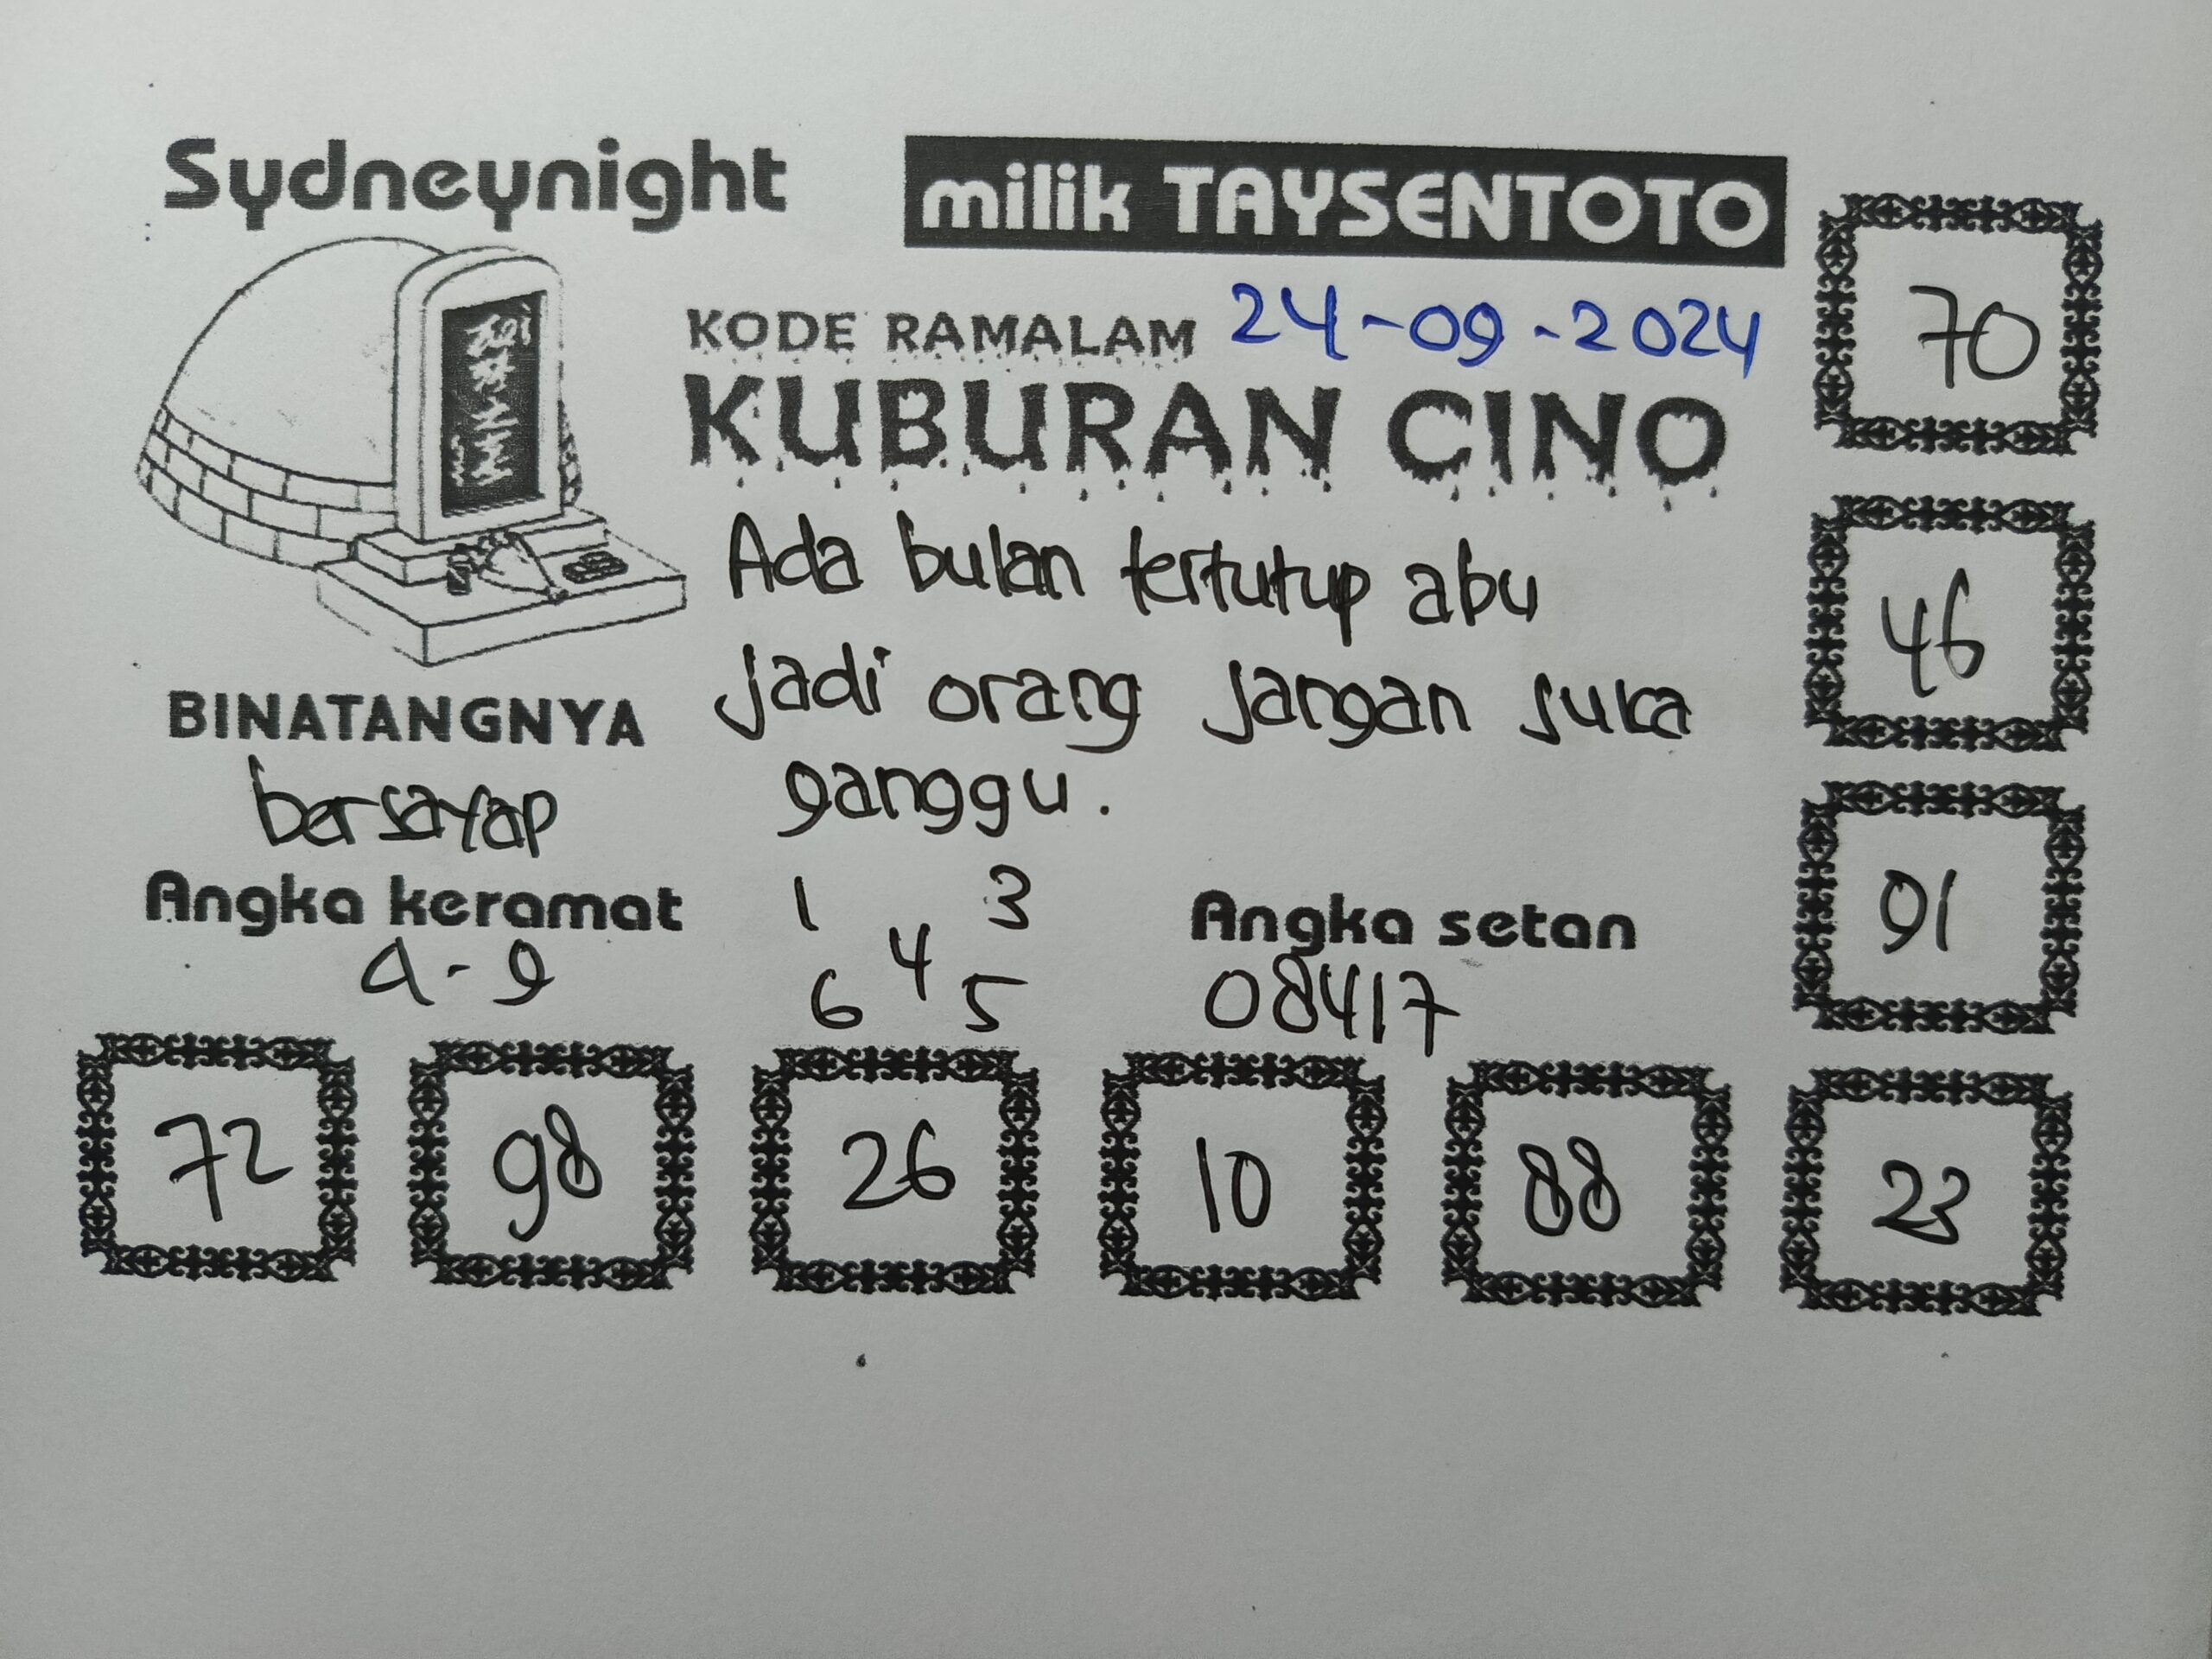 Sydneynight
milik TAYSENTOTO
KODE RAMALAM 24-09-2024
KUBURAN CINO
Ada bulan tertutup abu
jadi orang jangan suka
ganggu.
BINATANGNYA
bersayap
Angka keramat
9-9
1 3
4
6 5
Angka setan
08417
70
46
91
72 98 26 10 88 23